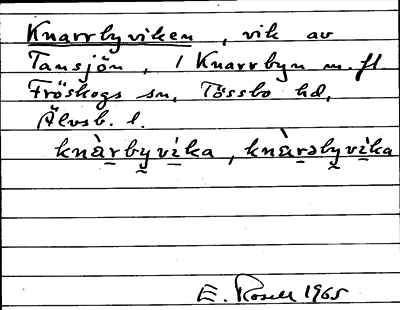 Knarrbyviken, vik av
Tansjön, i Knarrbyn m. fl.
Fröskogs sn, Tössbo hd,
Älvsb. l.
knàrbyvika, knàrəbyvika
E. Rosell 1965